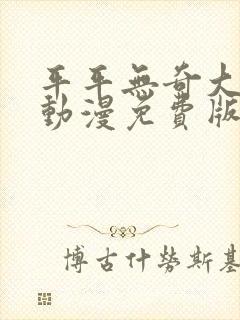 平平無奇大
動漫免費版
博古什勞斯基